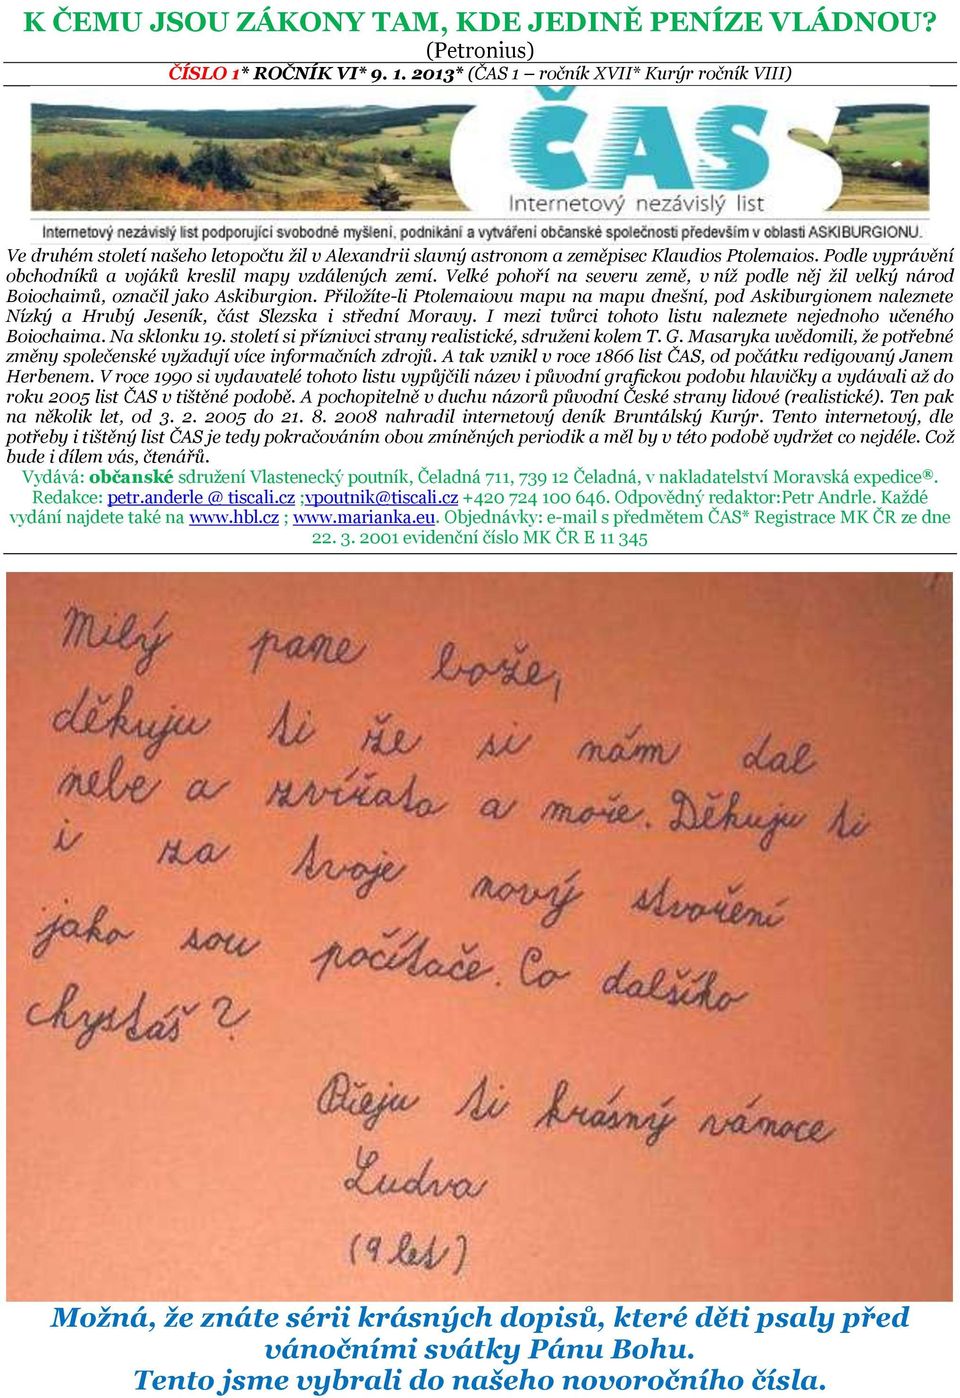 K ČEMU JSOU ZÁKONY TAM, KDE JEDINĚ PENÍZE VLÁDNOU?
(Petronius)
ČÍSLO 1* ROČNÍK VI* 9. 1. 2013* (ČAS 1 – ročník XVII* Kurýr ročník VIII)
ČAS
Internetový nezávislý list
Internetový nezávislý list podporující svobodné myšlení, podnikání a vytváření občanské společnosti především v oblasti ASKIBURGIONU.
Ve druhém století našeho letopočtu žil v Alexandrii slavný astronom a zeměpisec Klaudios Ptolemaios. Podle vyprávění
obchodníků a vojáků kreslil mapy vzdálených zemí. Velké pohoří na severu země, v níž podle něj žil velký národ
Boiochaimů, označil jako Askiburgion. Přiložíte-li Ptolemaiovu mapu na mapu dnešní, pod Askiburgionem naleznete
Nízký a Hrubý Jeseník, část Slezska i střední Moravy. I mezi tvůrci tohoto listu naleznete nejednoho učeného
Boiochaima. Na sklonku 19. století si příznivci strany realistické, sdruženi kolem T. G. Masaryka uvědomili, že potřebné
změny společenské vyžadují více informačních zdrojů. A tak vznikl v roce 1866 list ČAS, od počátku redigovaný Janem
Herbenem. V roce 1990 si vydavatelé tohoto listu vypůjčili název i původní grafickou podobu hlavičky a vydávali až do
roku 2005 list ČAS v tištěné podobě. A pochopitelně v duchu názorů původní České strany lidové (realistické). Ten pak
na několik let, od 3. 2. 2005 do 21. 8. 2008 nahradil internetový deník Bruntálský Kurýr. Tento internetový, dle
potřeby i tištěný list ČAS je tedy pokračováním obou zmíněných periodik a měl by v této podobě vydržet co nejdéle. Což
bude i dílem vás, čtenářů.
Vydává: občanské sdružení Vlastenecký poutník, Čeladná 711, 739 12 Čeladná, v nakladatelství Moravská expedice®.
Redakce: petr.anderle @ tiscali.cz ;vpoutnik@tiscali.cz +420 724 100 646. Odpovědný redaktor:Petr Andrle. Každé
vydání najdete také na www.hbl.cz ; www.marianka.eu. Objednávky: e-mail s předmětem ČAS* Registrace MK ČR ze dne
22. 3. 2001 evidenční číslo MK ČR E 11 345
Milý pane bože,
děkuju ti že si nám dal
nebe a zvířata a moře. Děkuju ti
i za tvoje nový stvoření
jako sou počítače. Co dalšího
chystáš?
Přeju ti krásný vánoce
Ludva
(9 let)
Možná, že znáte sérii krásných dopisů, které děti psaly před
vánočními svátky Pánu Bohu.
Tento jsme vybrali do našeho novoročního čísla.